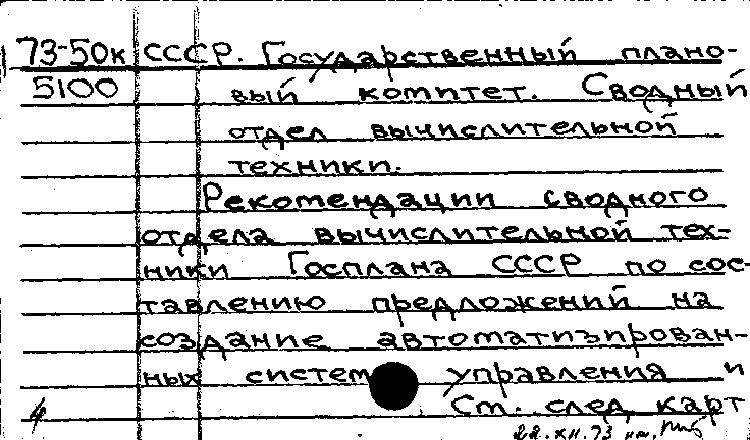 73-50к СССР. Государственный плано-
5100 вый комитет. Сводный
отдел вычислительной
техники.
Рекомендации сводного
отдела вычислительной тех-
ники Госплана СССР по сос-
тавлению предложений на
создание автоматизирован-
ных систем управления и
4 См. след. карт
22.XII.73